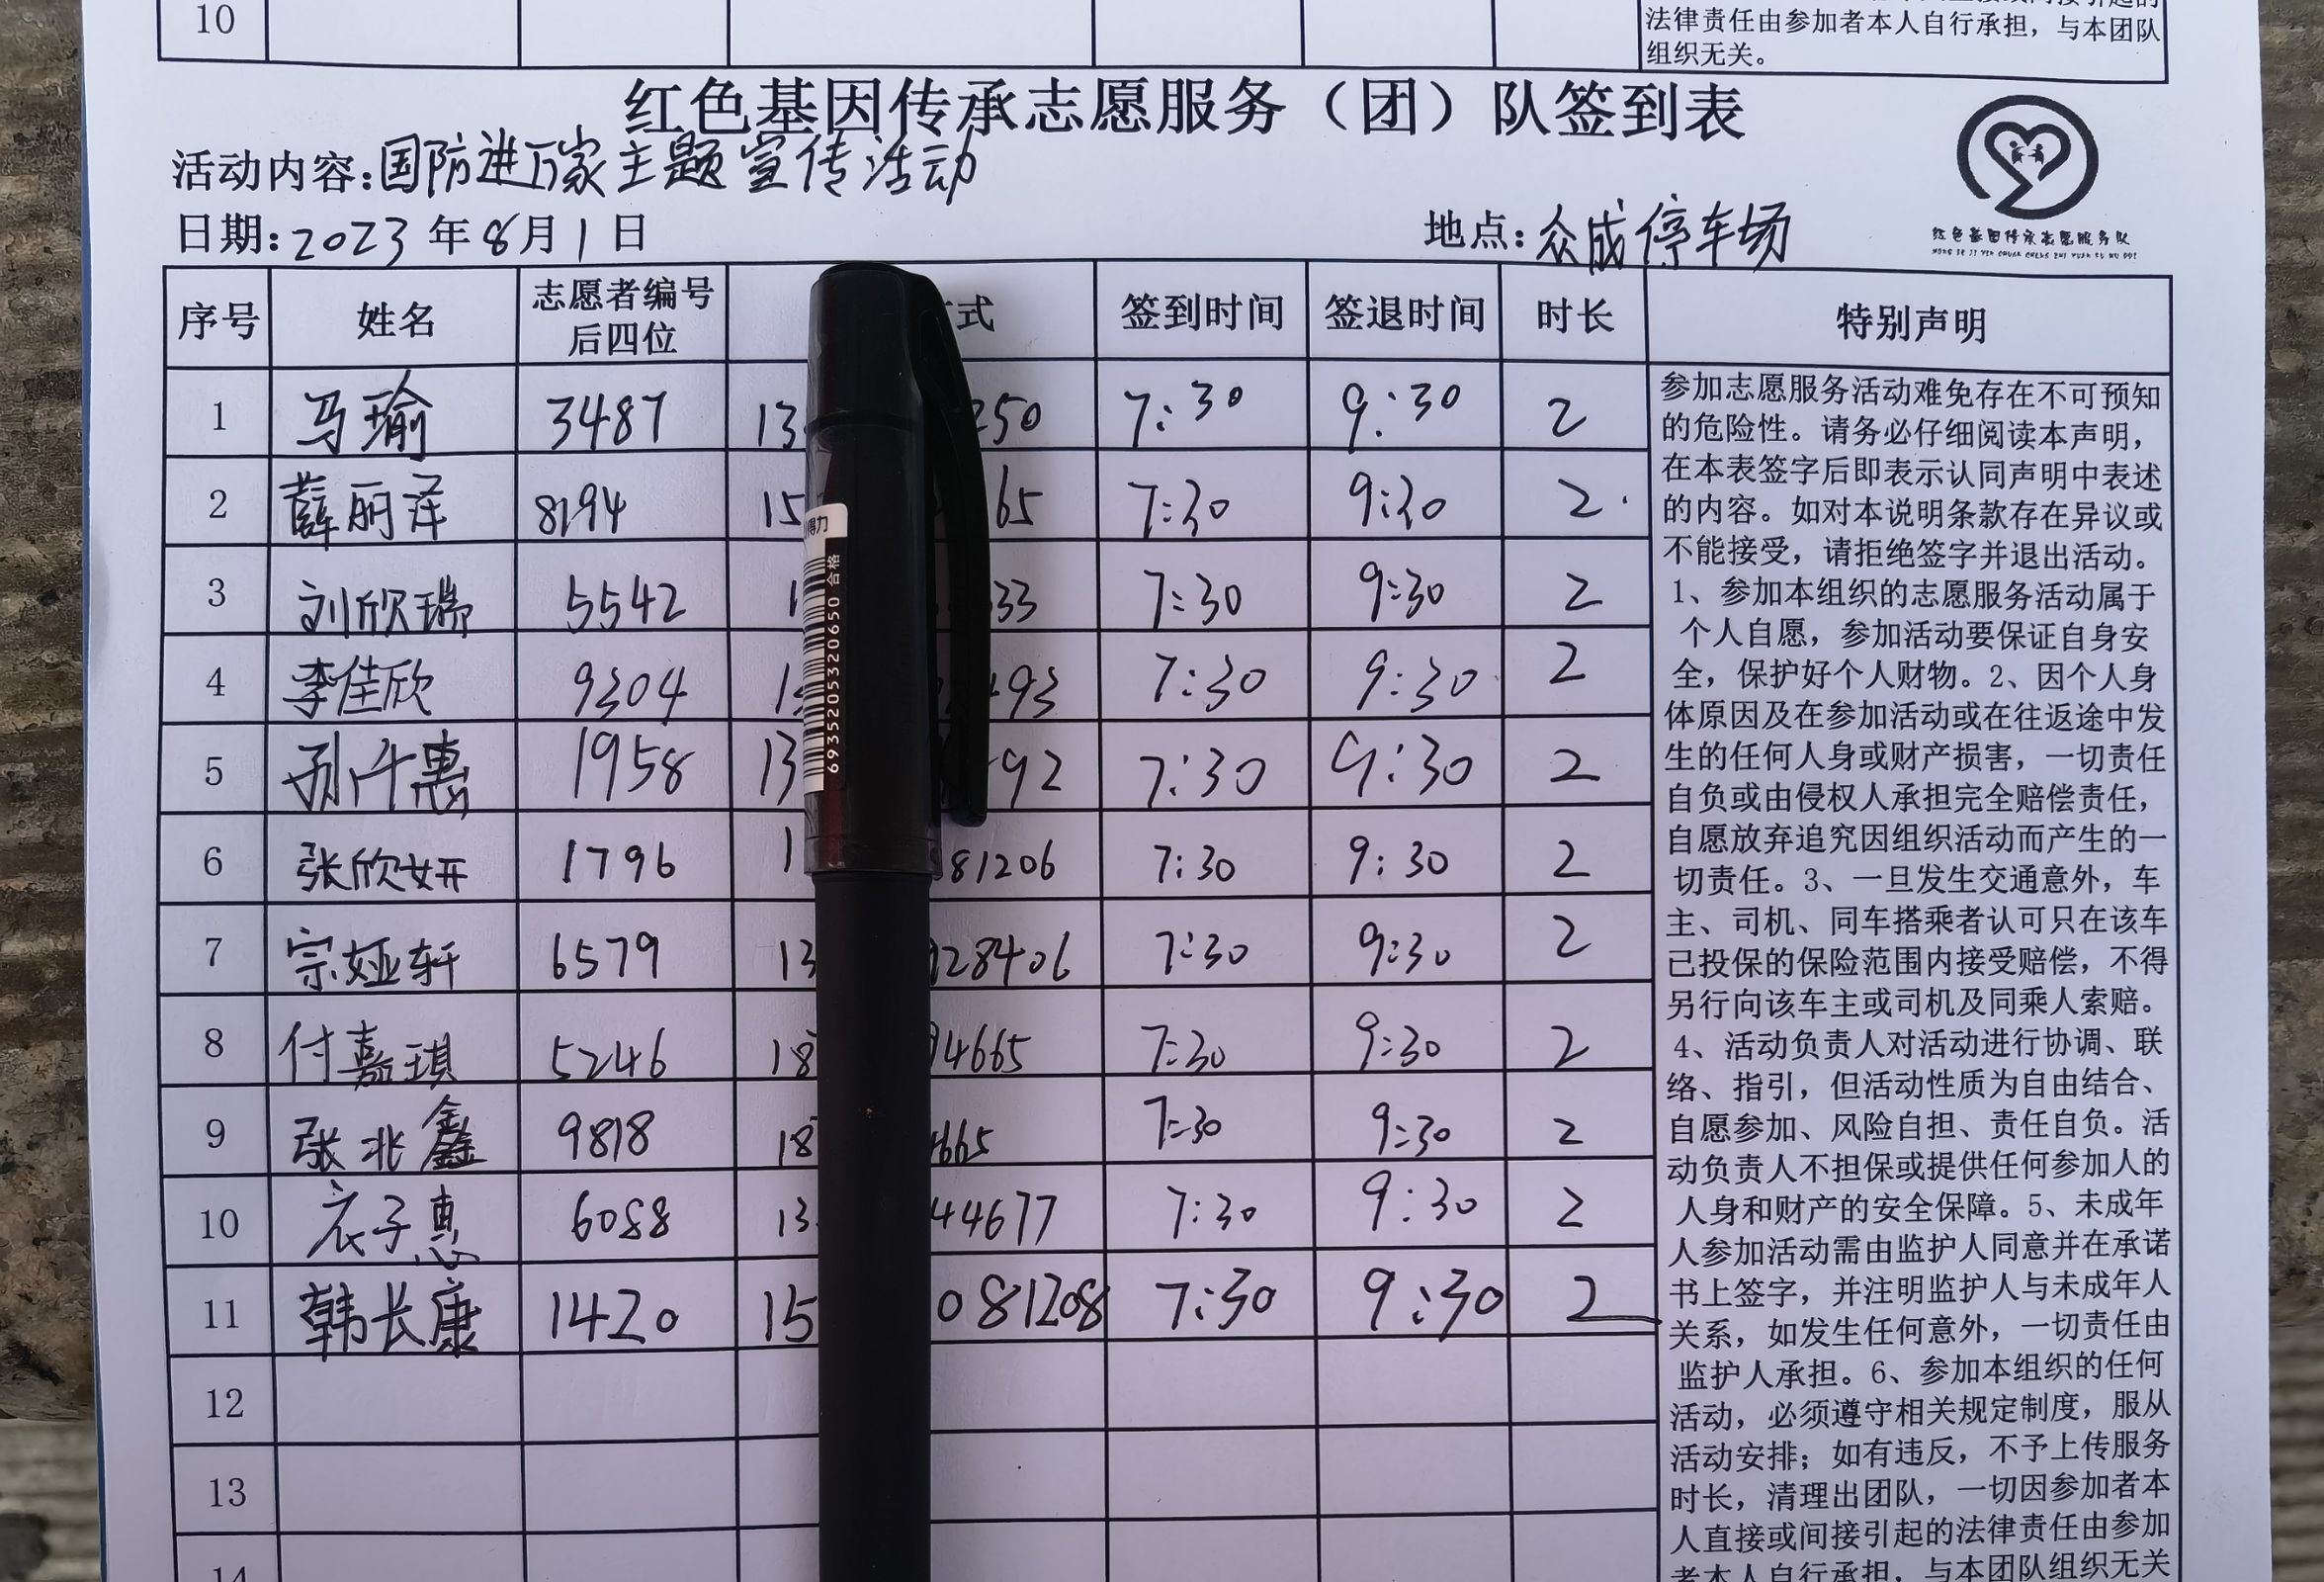 10
法律责任由参加者本人自行承担，与本团队
组织无关。
红色基因传承志愿服务（团）队签到表
活动内容:国防进万家主题宣传活动
日期:2023年8月1日 地点:众成停车场
红色基因传承志愿服务队
序号 姓名 志愿者编号后四位 式 签到时间 签退时间 时长 特别声明
1 马瑜 3487 13 350 7:30 9:30 2
2 薛丽泽 8194 15 65 7:30 9:30 2
3 刘欣瑞 5542 1 33 7:30 9:30 2
4 李佳欣 9304 1 493 7:30 9:30 2
5 孙 惠 1958 13 92 7:30 9:30 2
6 张欣妍 1796 1 81206 7:30 9:30 2
7 宗娅轩 6579 13 928406 7:30 9:30 2
8 付嘉琪 5246 18 94665 7:30 9:30 2
9 张兆鑫 9818 18 4665 7:30 9:30 2
10 衣子惠 6088 13 44677 7:30 9:30 2
11 韩长康 1420 15 081208 7:30 9:30 2
12
13
14
得力
6935205320650 合格
参加志愿服务活动难免存在不可预知
的危险性。请务必仔细阅读本声明，
在本表签字后即表示认同声明中表述
的内容。如对本说明条款存在异议或
不能接受，请拒绝签字并退出活动。
1、参加本组织的志愿服务活动属于
个人自愿，参加活动要保证自身安
全，保护好个人财物。2、因个人身
体原因及在参加活动或在往返途中发
生的任何人身或财产损害，一切责任
自负或由侵权人承担完全赔偿责任，
自愿放弃追究因组织活动而产生的一
切责任。3、一旦发生交通意外，车
主、司机、同车搭乘者认可只在该车
已投保的保险范围内接受赔偿，不得
另行向该车主或司机及同乘人索赔。
4、活动负责人对活动进行协调、联
络、指引，但活动性质为自由结合、
自愿参加、风险自担、责任自负。活
动负责人不担保或提供任何参加人的
人身和财产的安全保障。5、未成年
人参加活动需由监护人同意并在承诺
书上签字，并注明监护人与未成年人
关系，如发生任何意外，一切责任由
监护人承担。6、参加本组织的任何
活动，必须遵守相关规定制度，服从
活动安排；如有违反，不予上传服务
时长，清理出团队，一切因参加者本
人直接或间接引起的法律责任由参加
者本人自行承担，与本团队组织无关